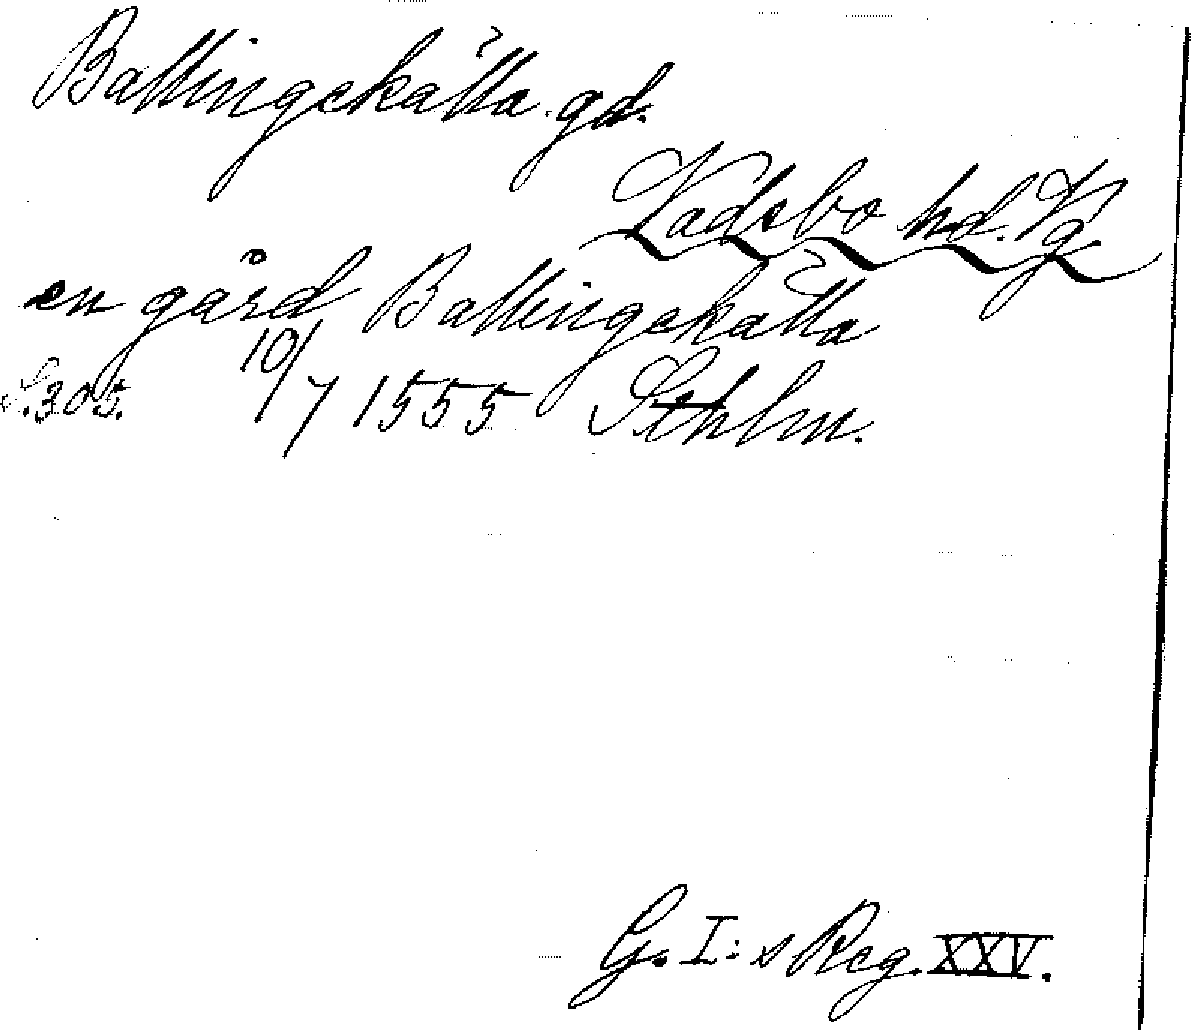 Ballingskälla gd.
Vadsbo hd. Vg
en gård Ballingskälla
S. 305. 10/7 1555 Sthlm.
G. I:s Reg. XXV.